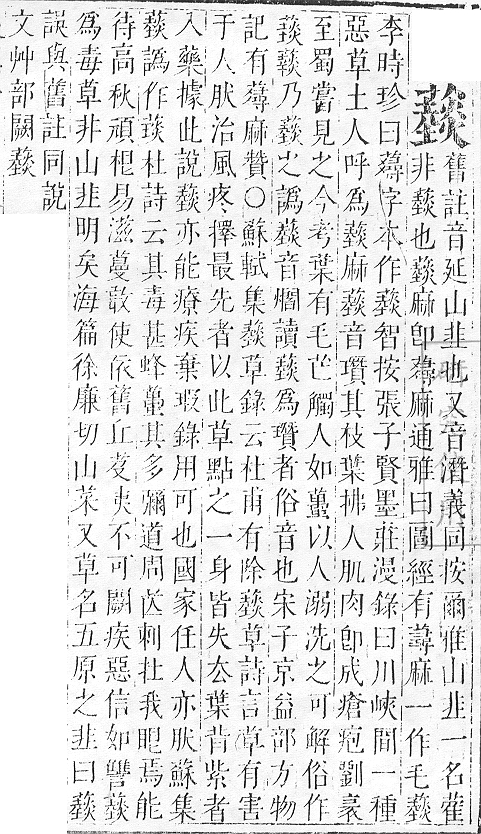 䕭舊註音延山韭也又音潛義同按爾雅山韭一名藿
非䕭也䕭麻卽蕁麻通雅曰圖經有蕁麻一作毛䕭
李時珍曰蕁字本作䕭智按張子賢墨莊漫錄曰川峽間一種
惡草土人呼爲䕭麻䕭音瓚其枝葉拂人肌肉卽成瘡疱劉袤
至蜀嘗見之今考葉有毛芒觸人如蠆以人溺洗之可解俗作
乃䕭之譌䕭音爓讀䕭爲瓚者俗音也宋子京益部方物
記有蕁麻贊○蘇軾集䕭草錄云杜甫有除䕭草詩言草有害
于人肰治風疼擇最先者以此草點之一身皆失去葉背紫者
入藥據此說䕭亦能療疾棄瑕錄用可也國家任人亦肰蘇集
䕭譌作杜詩云其毒甚蜂蠆其多彌道周芒刺在我眼焉能
待高秋頑根易滋蔓敢使依舊丘芟夷不可闕疾惡信如讐䕭
爲毒草非山韭明矣海篇徐廉切山菜又草名五原之韭曰䕭
誤與舊註同說
文艸部闕䕭